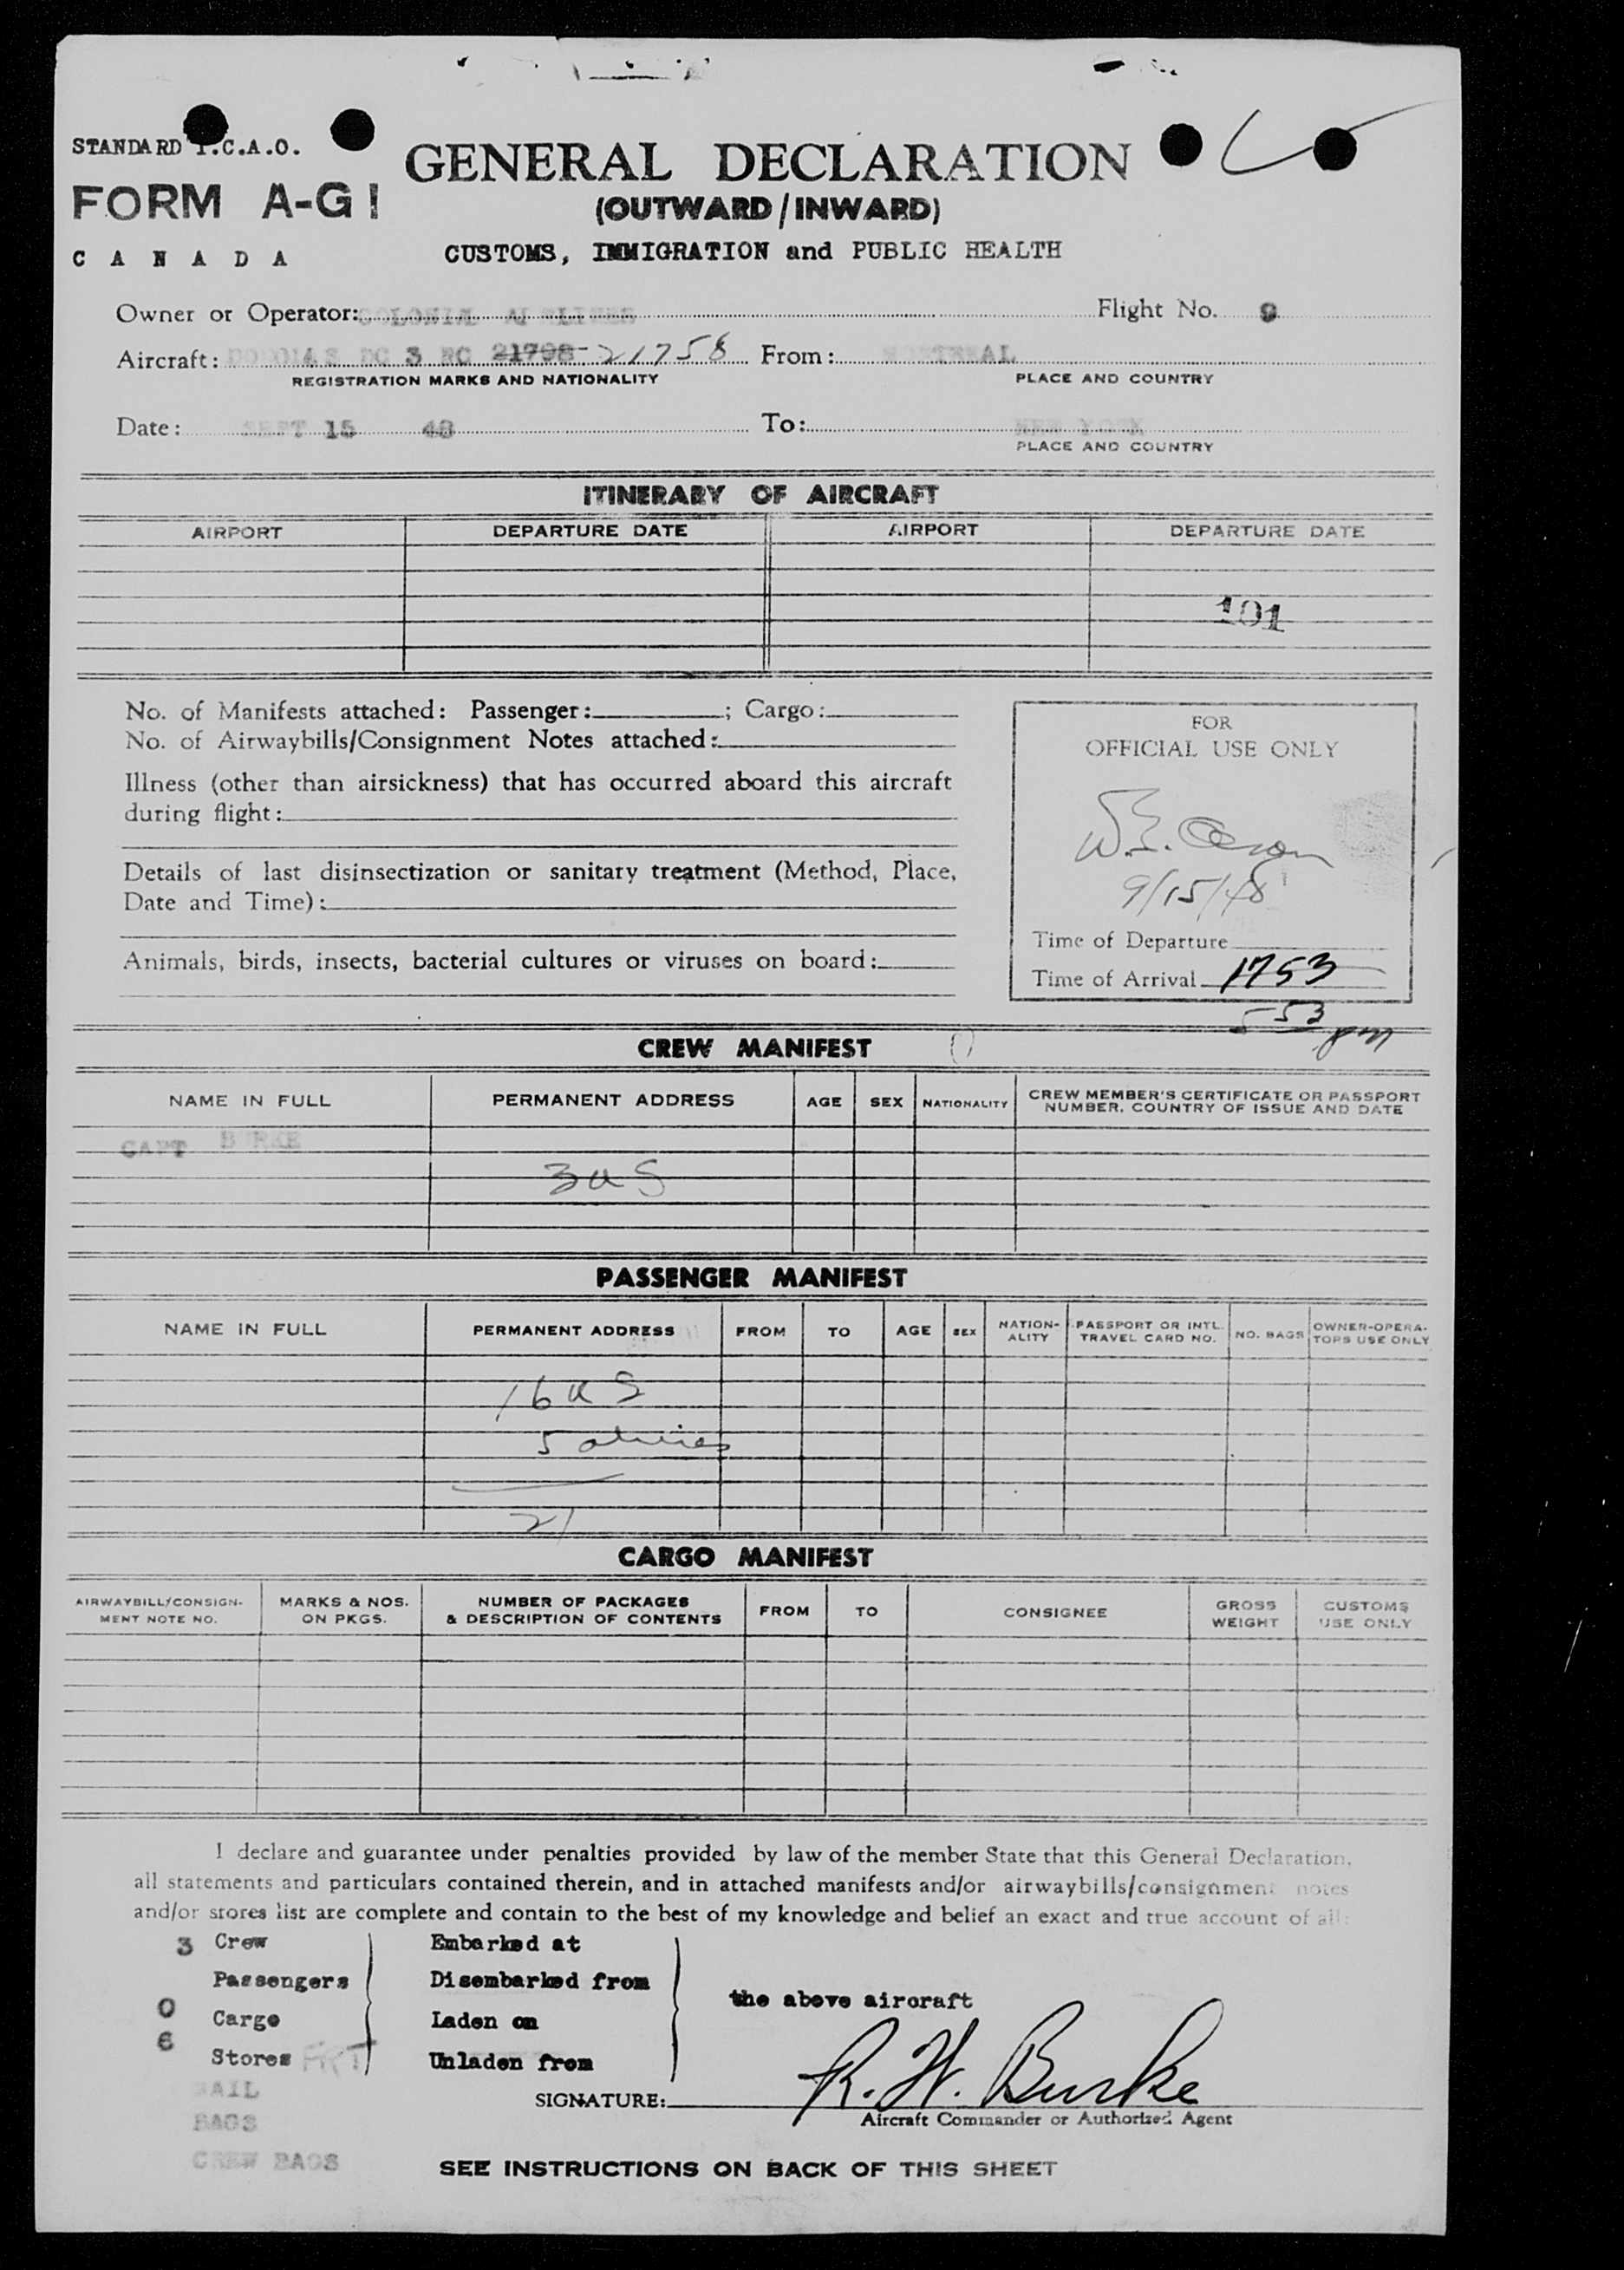 STANDARD I.C.A.O.
FORM A-G1
CANADA
GENERAL DECLARATION
(OUTWARD/INWARD)
CUSTOMS, IMMIGRATION and PUBLIC HEALTH
Owner or Operator: COLONIAL AIRLINES Flight No. 9
Aircraft: DOUGLAS DC 3 NC 21798 21758 From: MONTREAL
REGISTRATION MARKS AND NATIONALITY PLACE AND COUNTRY
Date: SEPT 15 48 To: NEW YORK
PLACE AND COUNTRY
ITINERARY OF AIRCRAFT
AIRPORT DEPARTURE DATE AIRPORT DEPARTURE DATE
101
No. of Manifests attached: Passenger: ; Cargo:
No. of Airwaybills/Consignment Notes attached:
Illness (other than airsickness) that has occurred aboard this aircraft
during flight:
Details of last disinsectization or sanitary treatment (Method, Place,
Date and Time):
Animals, birds, insects, bacterial cultures or viruses on board:
FOR
OFFICIAL USE ONLY
9/15/48
Time of Departure
Time of Arrival 1753
5 53 pm
CREW MANIFEST
NAME IN FULL PERMANENT ADDRESS AGE SEX NATIONALITY CREW MEMBER'S CERTIFICATE OR PASSPORT NUMBER, COUNTRY OF ISSUE AND DATE
CAPT BURKE
3 US
PASSENGER MANIFEST
NAME IN FULL PERMANENT ADDRESS FROM TO AGE SEX NATION-ALITY PASSPORT OR INTL. TRAVEL CARD NO. NO. BAGS OWNER-OPERA-TORS USE ONLY
16 US
5 aliens
21
CARGO MANIFEST
AIRWAYBILL/CONSIGN-MENT NOTE NO. MARKS & NOS. ON PKGS. NUMBER OF PACKAGES & DESCRIPTION OF CONTENTS FROM TO CONSIGNEE GROSS WEIGHT CUSTOMS USE ONLY
I declare and guarantee under penalties provided by law of the member State that this General Declaration,
all statements and particulars contained therein, and in attached manifests and/or airwaybills/consignment notes
and/or stores list are complete and contain to the best of my knowledge and belief an exact and true account of all:
3 Crew Embarked at
Passengers Disembarked from
the above aircraft
0 Cargo Laden on
6 Stores Unladen from
MAIL
BAGS
CREW BAGS
SIGNATURE: R. W. Burke
Aircraft Commander or Authorized Agent
SEE INSTRUCTIONS ON BACK OF THIS SHEET